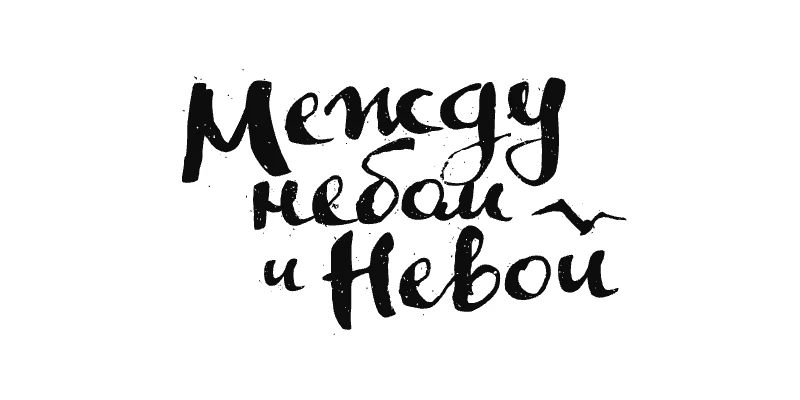 Между
небом
и Невой